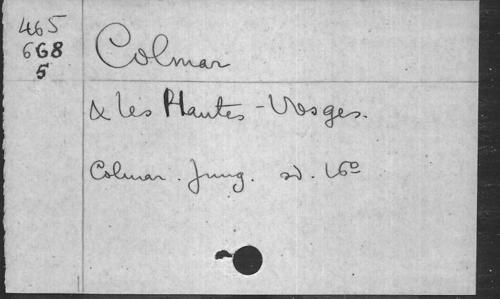 465
668
5
Colmar
& les Hautes-Vosges.
Colmar. Jung. sd. 16°